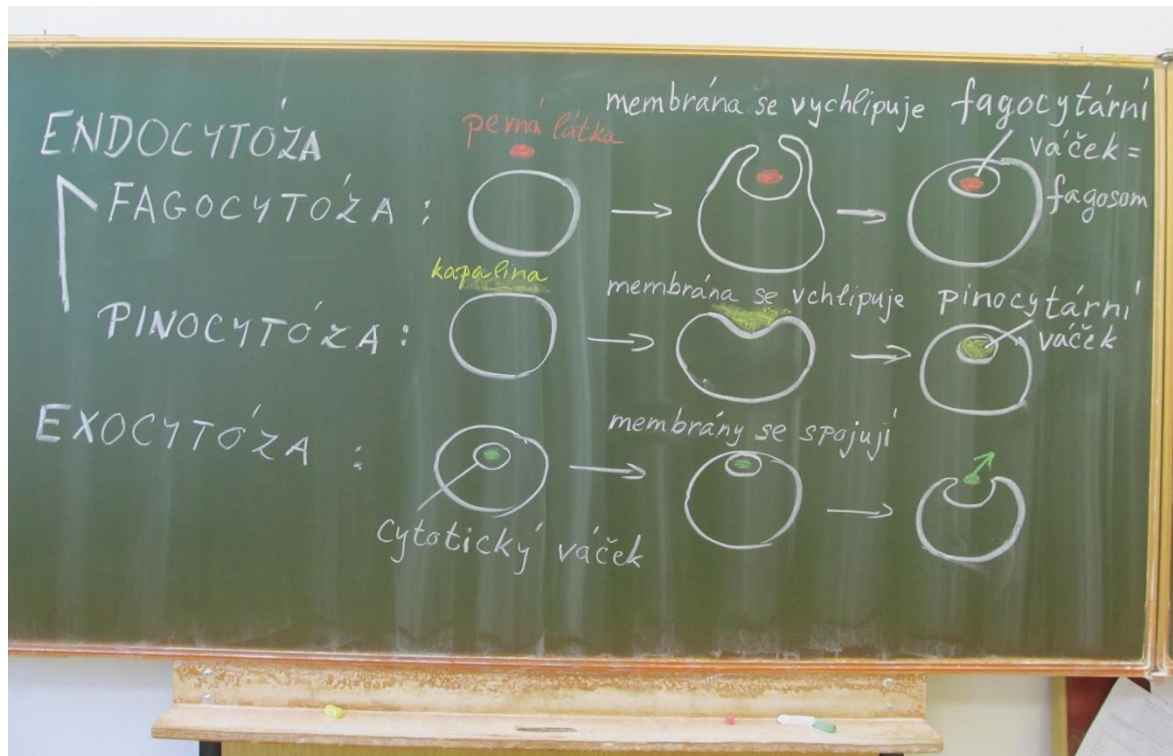 ENDOCYTÓZA
FAGOCYTÓZA :
pevná látka
membrána se vychlipuje
fagocytární
váček =
fagosom
PINOCYTÓZA :
kapalina
membrána se vchlipuje
pinocytární
váček
EXOCYTÓZA :
cytotický váček
membrány se spojují